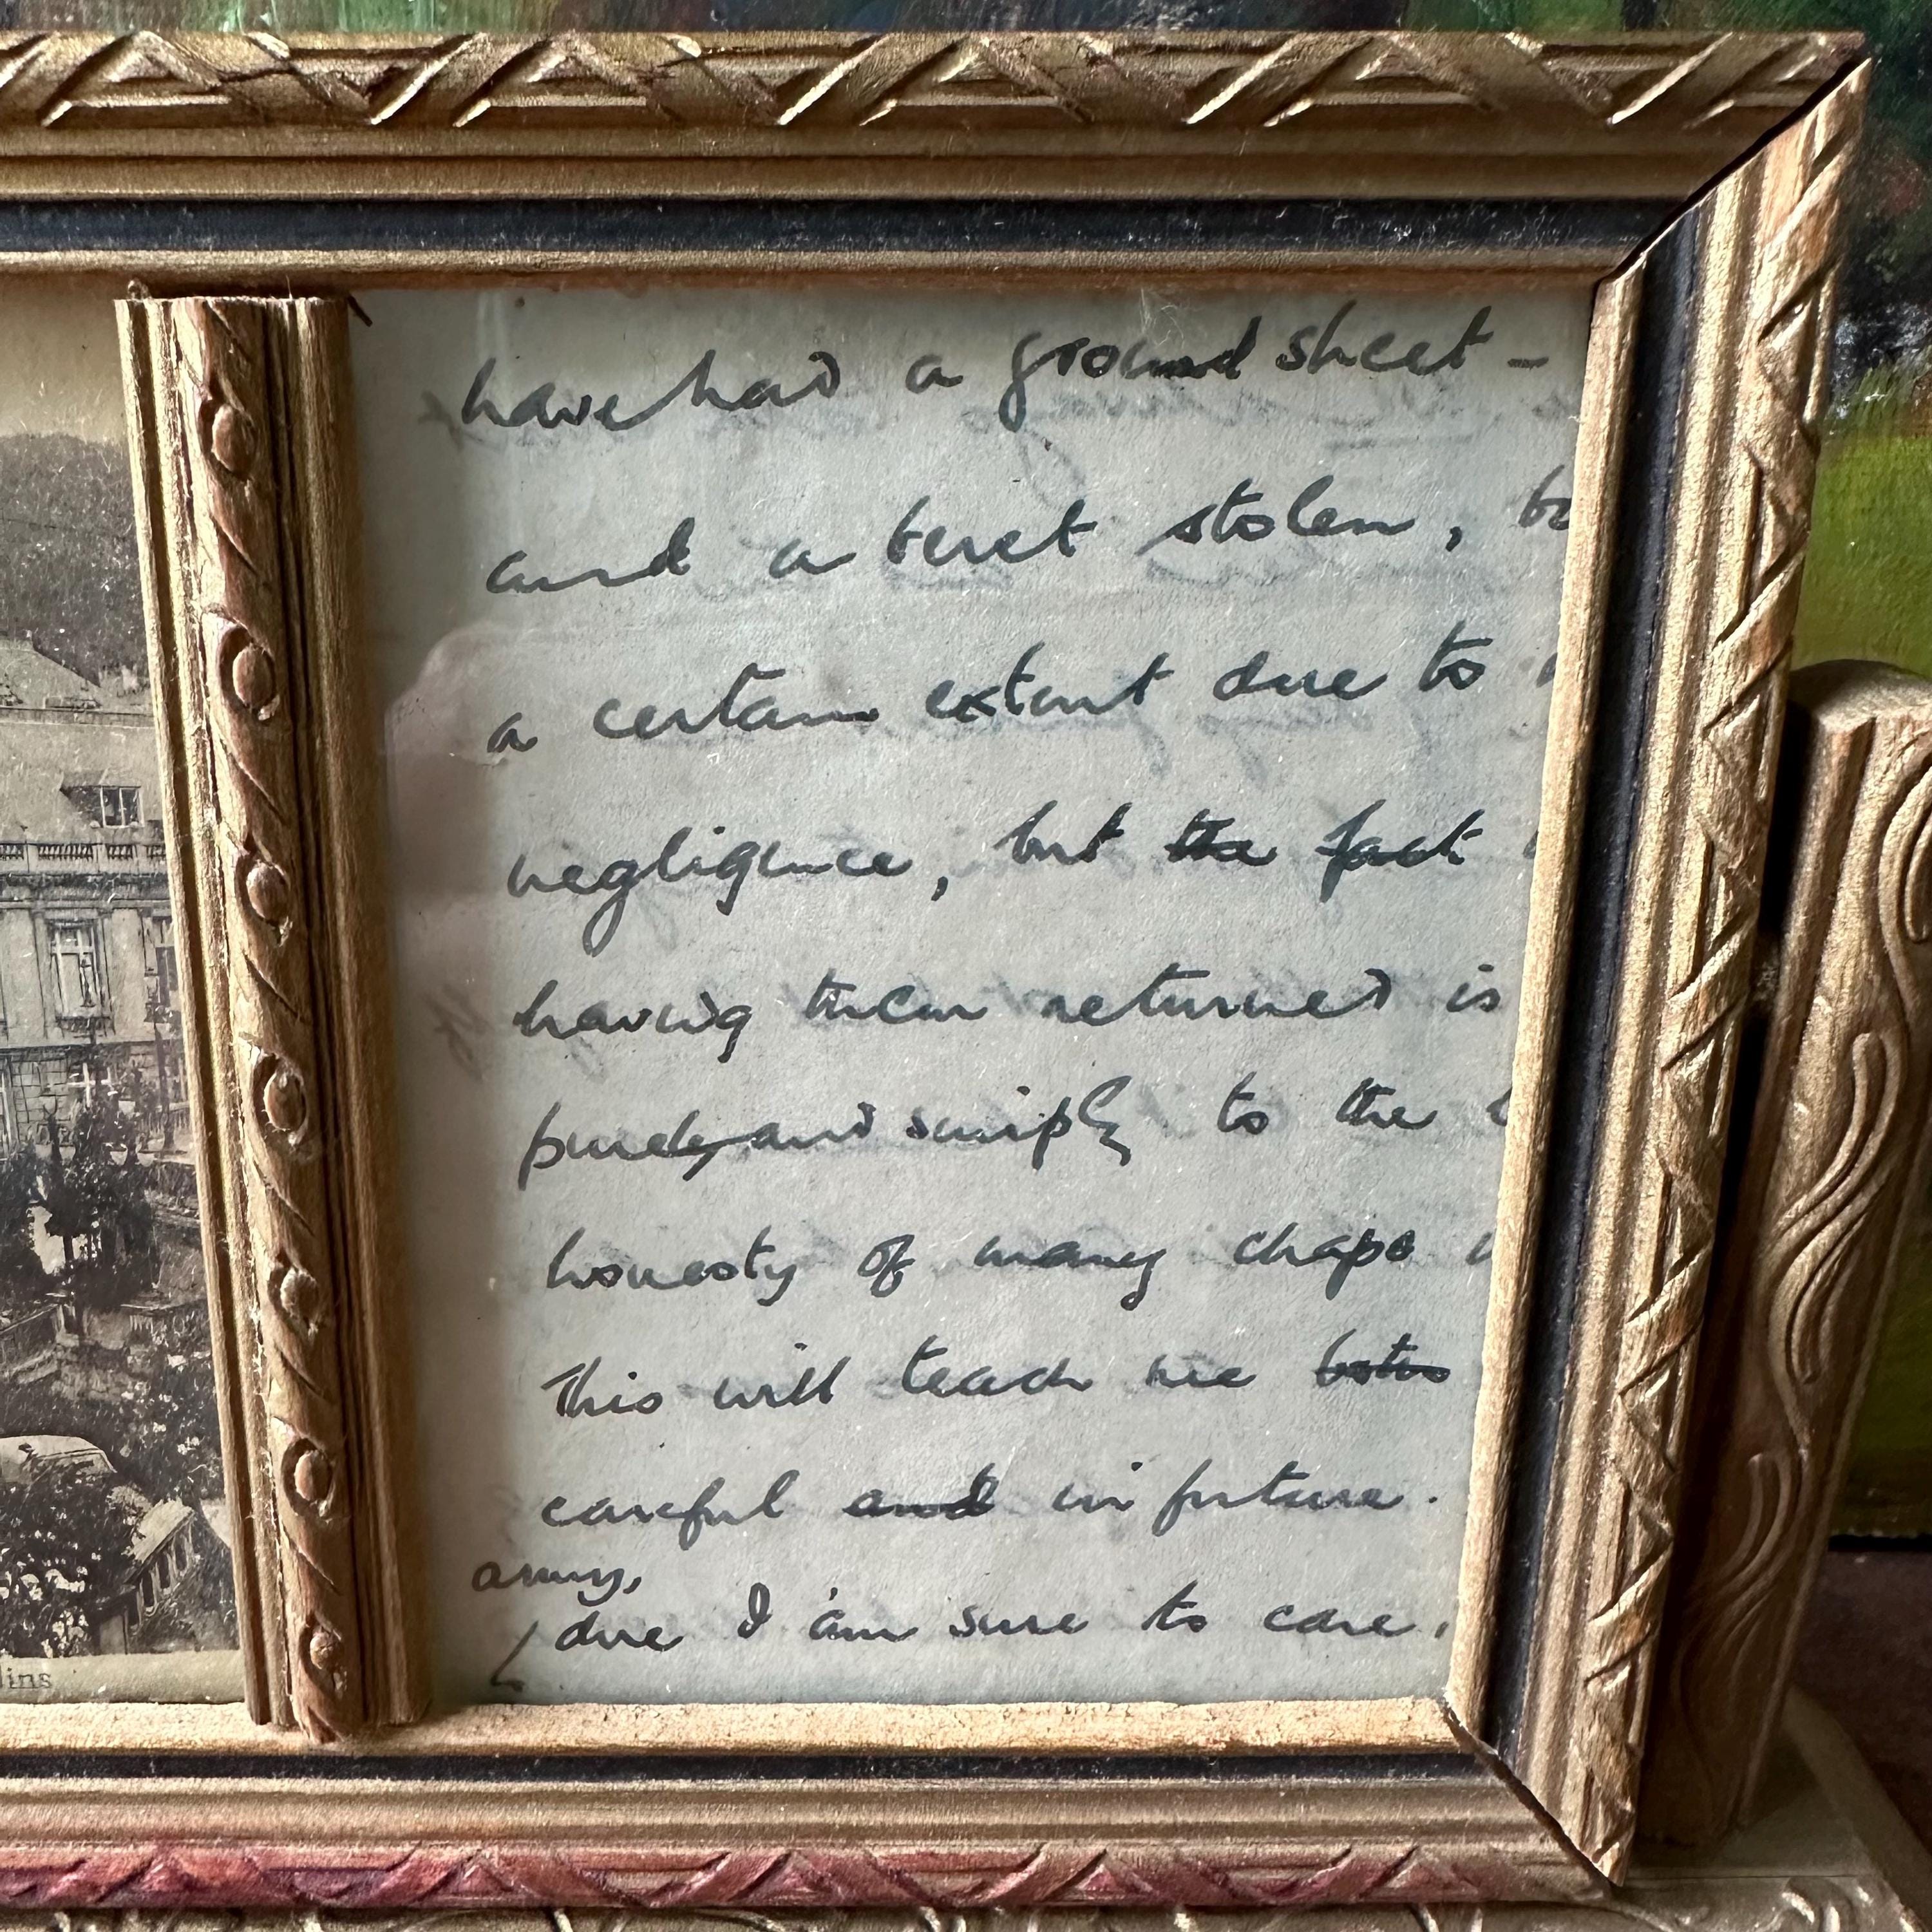 have had a ground sheet -
and a beret stolen,
a certain extent due to
negligence, but the fact
having them returned is
purely and simply to the
honesty of many chaps
This will teach me
careful and in future.
army,
due I am sure to care.
lins